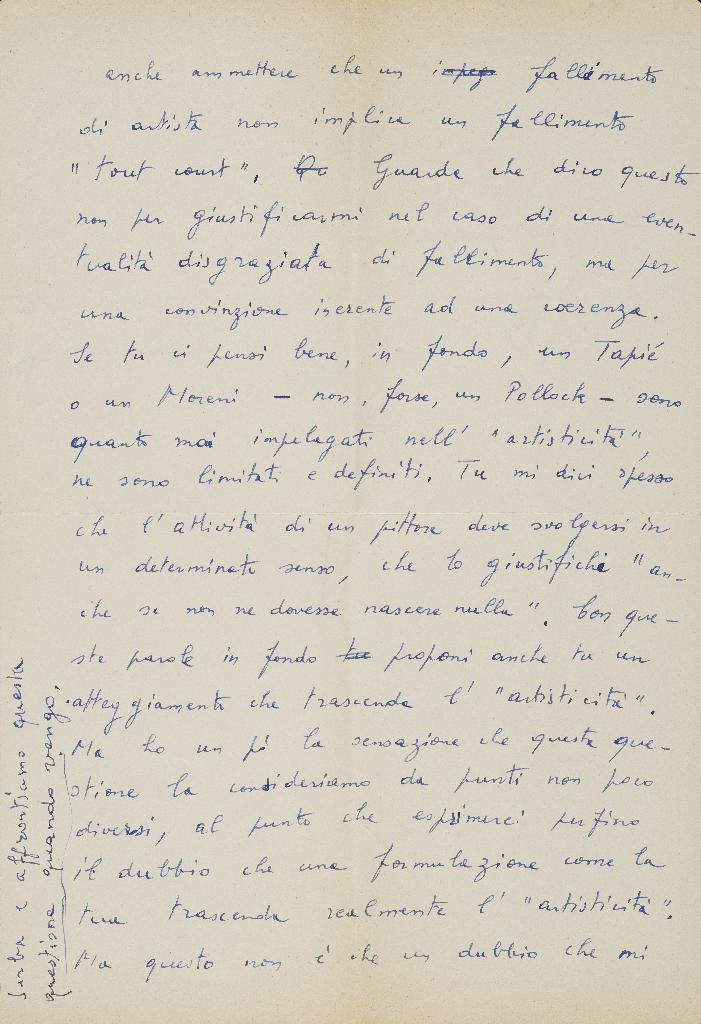 anche ammettere che un impeg fallimento
di artista non implica un fallimento
"tout court". Qu Guarda che dico questo
non per giustificarmi nel caso di una even-
tualità disgraziata di fallimento, ma per
una convinzione inerente ad una coerenza.
Se tu ci pensi bene, in fondo, un Tapié
o un Moreni — non, forse, un Pollock — sono
quanto mai impelagati nell' "artisticità",
ne sono limitati e definiti. Tu mi dici spesso
che l'attività di un pittore deve svolgersi in
un determinato senso, che lo giustifichi "an-
che se non ne dovesse nascere nulla". Con que-
ste parole in fondo tu proponi anche tu un
atteggiamento che trascenda l' "artisticità".
Ma ho un pò la sensazione che questa que-
stione la consideriamo da punti non poco
diversi, al punto che esprimerei perfino
il dubbio che una formulazione come la
tua trascenda realmente l' "artisticità".
Ma questo non è che un dubbio che mi
serbo e affrontiamo questa
questione quando vengo.